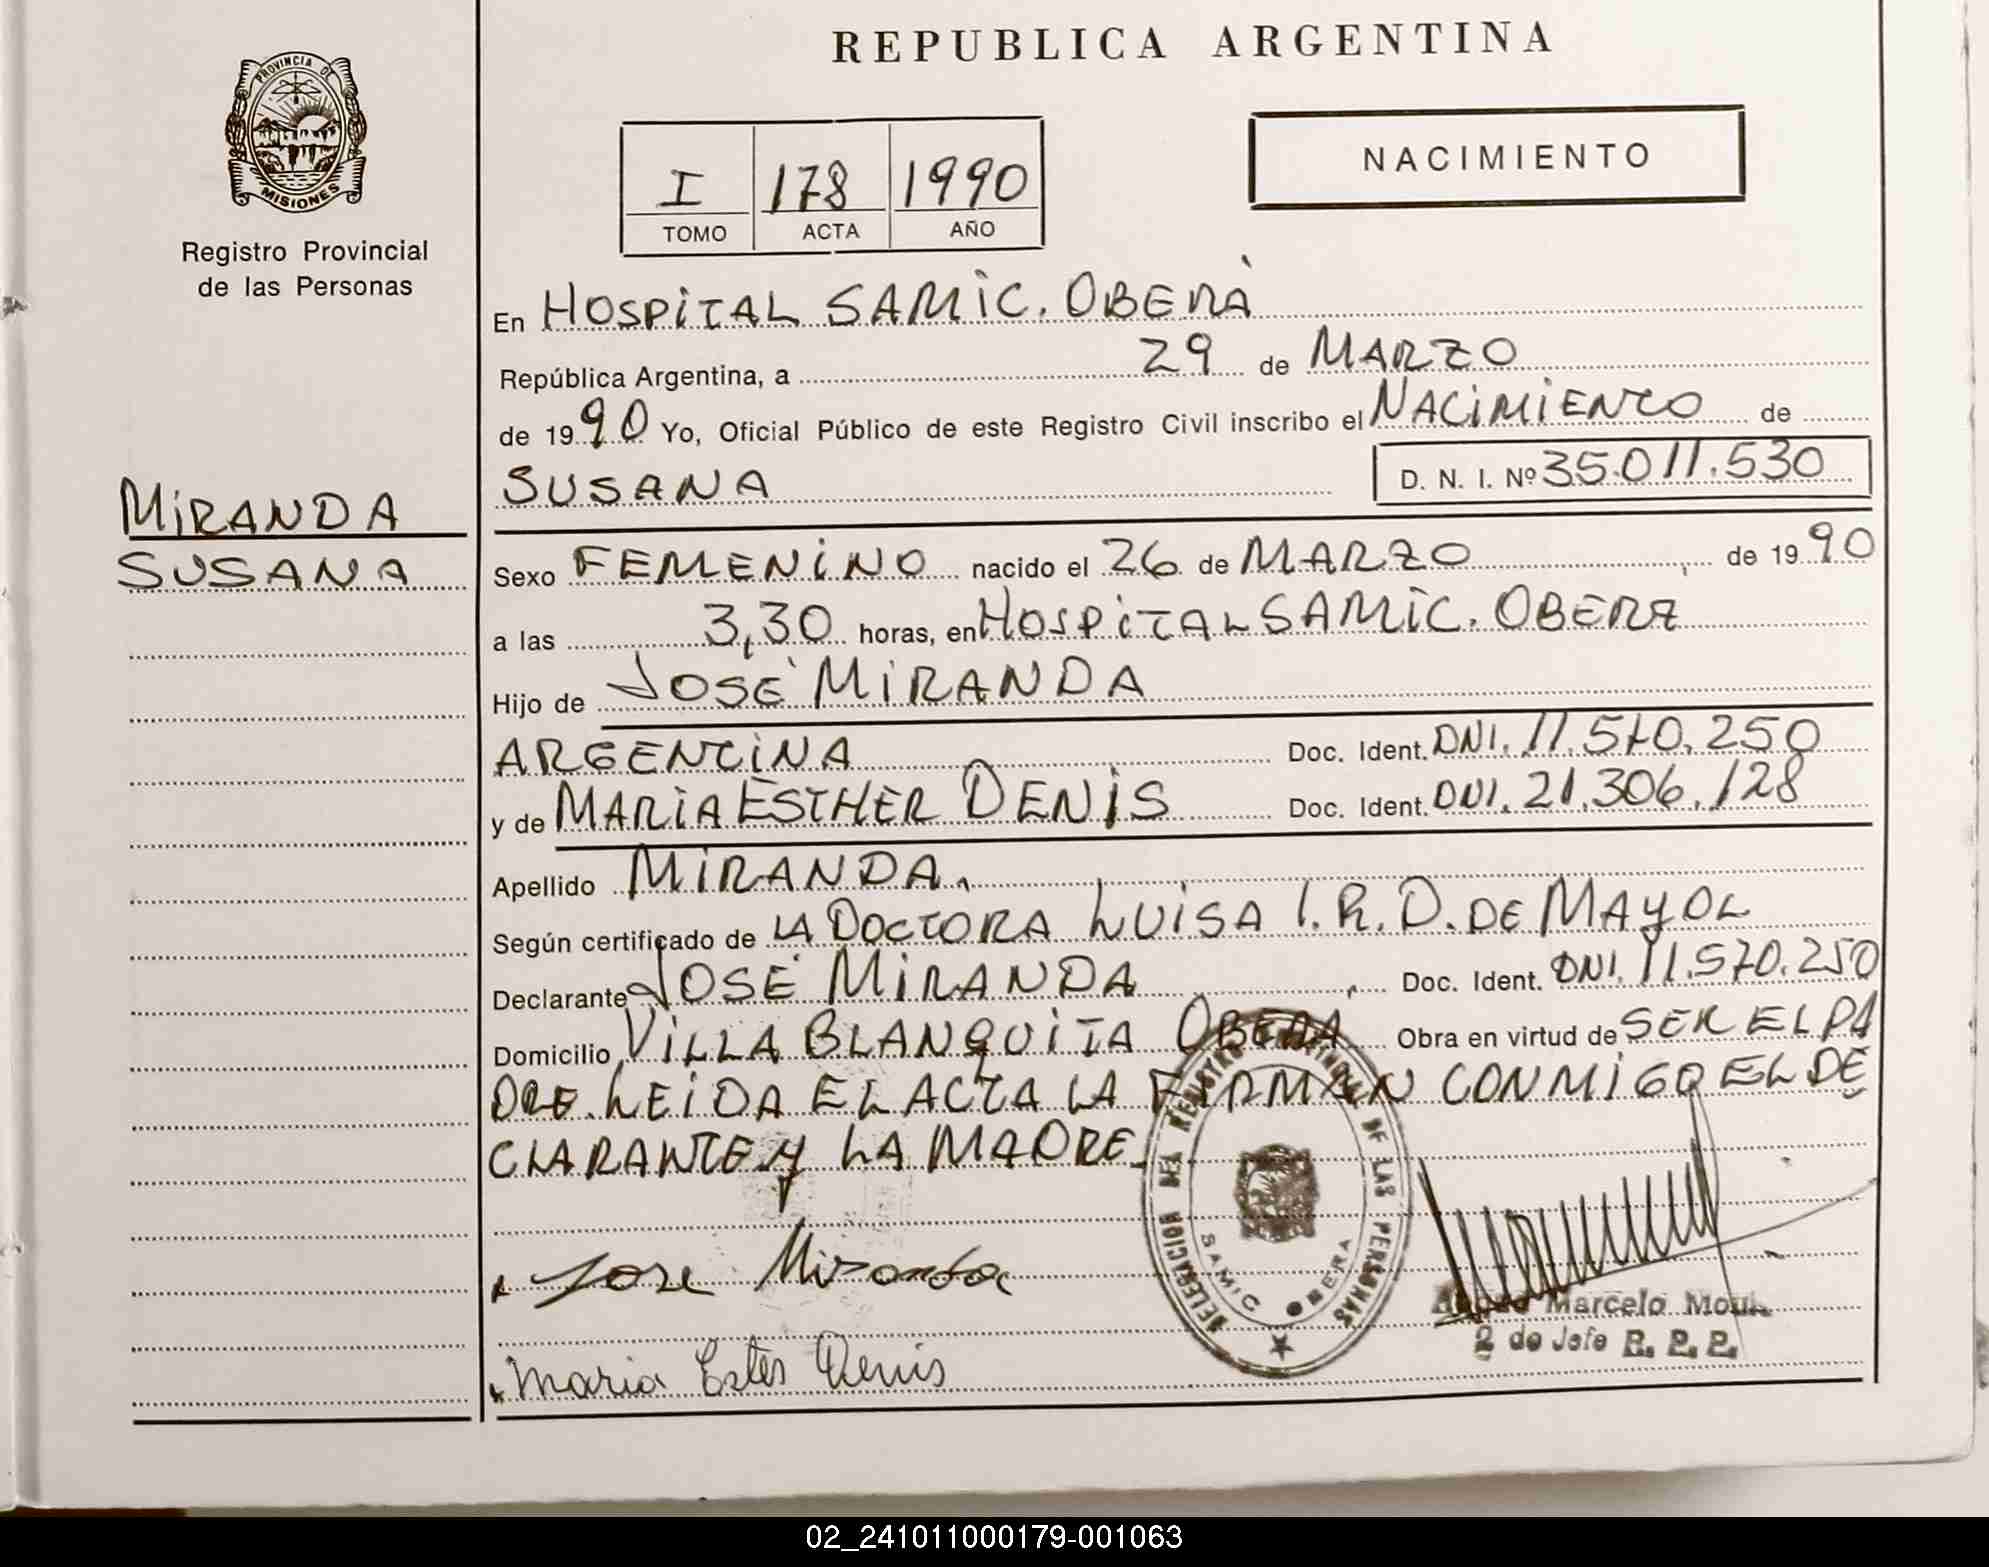 PROVINCIA DE
MISIONES
Registro Provincial
de las Personas
MIRANDA
SUSANA
REPUBLICA ARGENTINA
I 178 1990
TOMO ACTA AÑO
NACIMIENTO
En HOSPITAL SAMIC. OBERÁ
República Argentina, a 29 de MARZO
de 1990 Yo, Oficial Público de este Registro Civil inscribo el NACIMIENTO de
SUSANA D. N. I. Nº 35.011.530
Sexo FEMENINO nacido el 26 de MARZO de 1990
a las 3,30 horas, en HOSPITAL SAMIC. OBERA
Hijo de JOSÉ MIRANDA
ARGENTINA Doc. Ident. DNI. 11.570.250
y de MARIA ESTHER DENIS Doc. Ident. DNI. 21.306.128
Apellido MIRANDA.
Según certificado de LA DOCTORA LUISA I. R. D. DE MAYOL
Declarante JOSÉ MIRANDA Doc. Ident. DNI. 11.570.250
Domicilio VILLA BLANQUITA OBERÁ Obra en virtud de SER EL PA
DRE. LEIDA EL ACTA LA FIRMAN CONMIGO EL DE
CLARANTE Y LA MADRE
DELEGACION DEL REGISTRO PROVINCIAL DE LAS PERSONAS
SAMIC OBERA
Jose Miranda
Marcelo
2 do Jefe R. P. P.
Maria Ester Denis
02_241011000179-001063